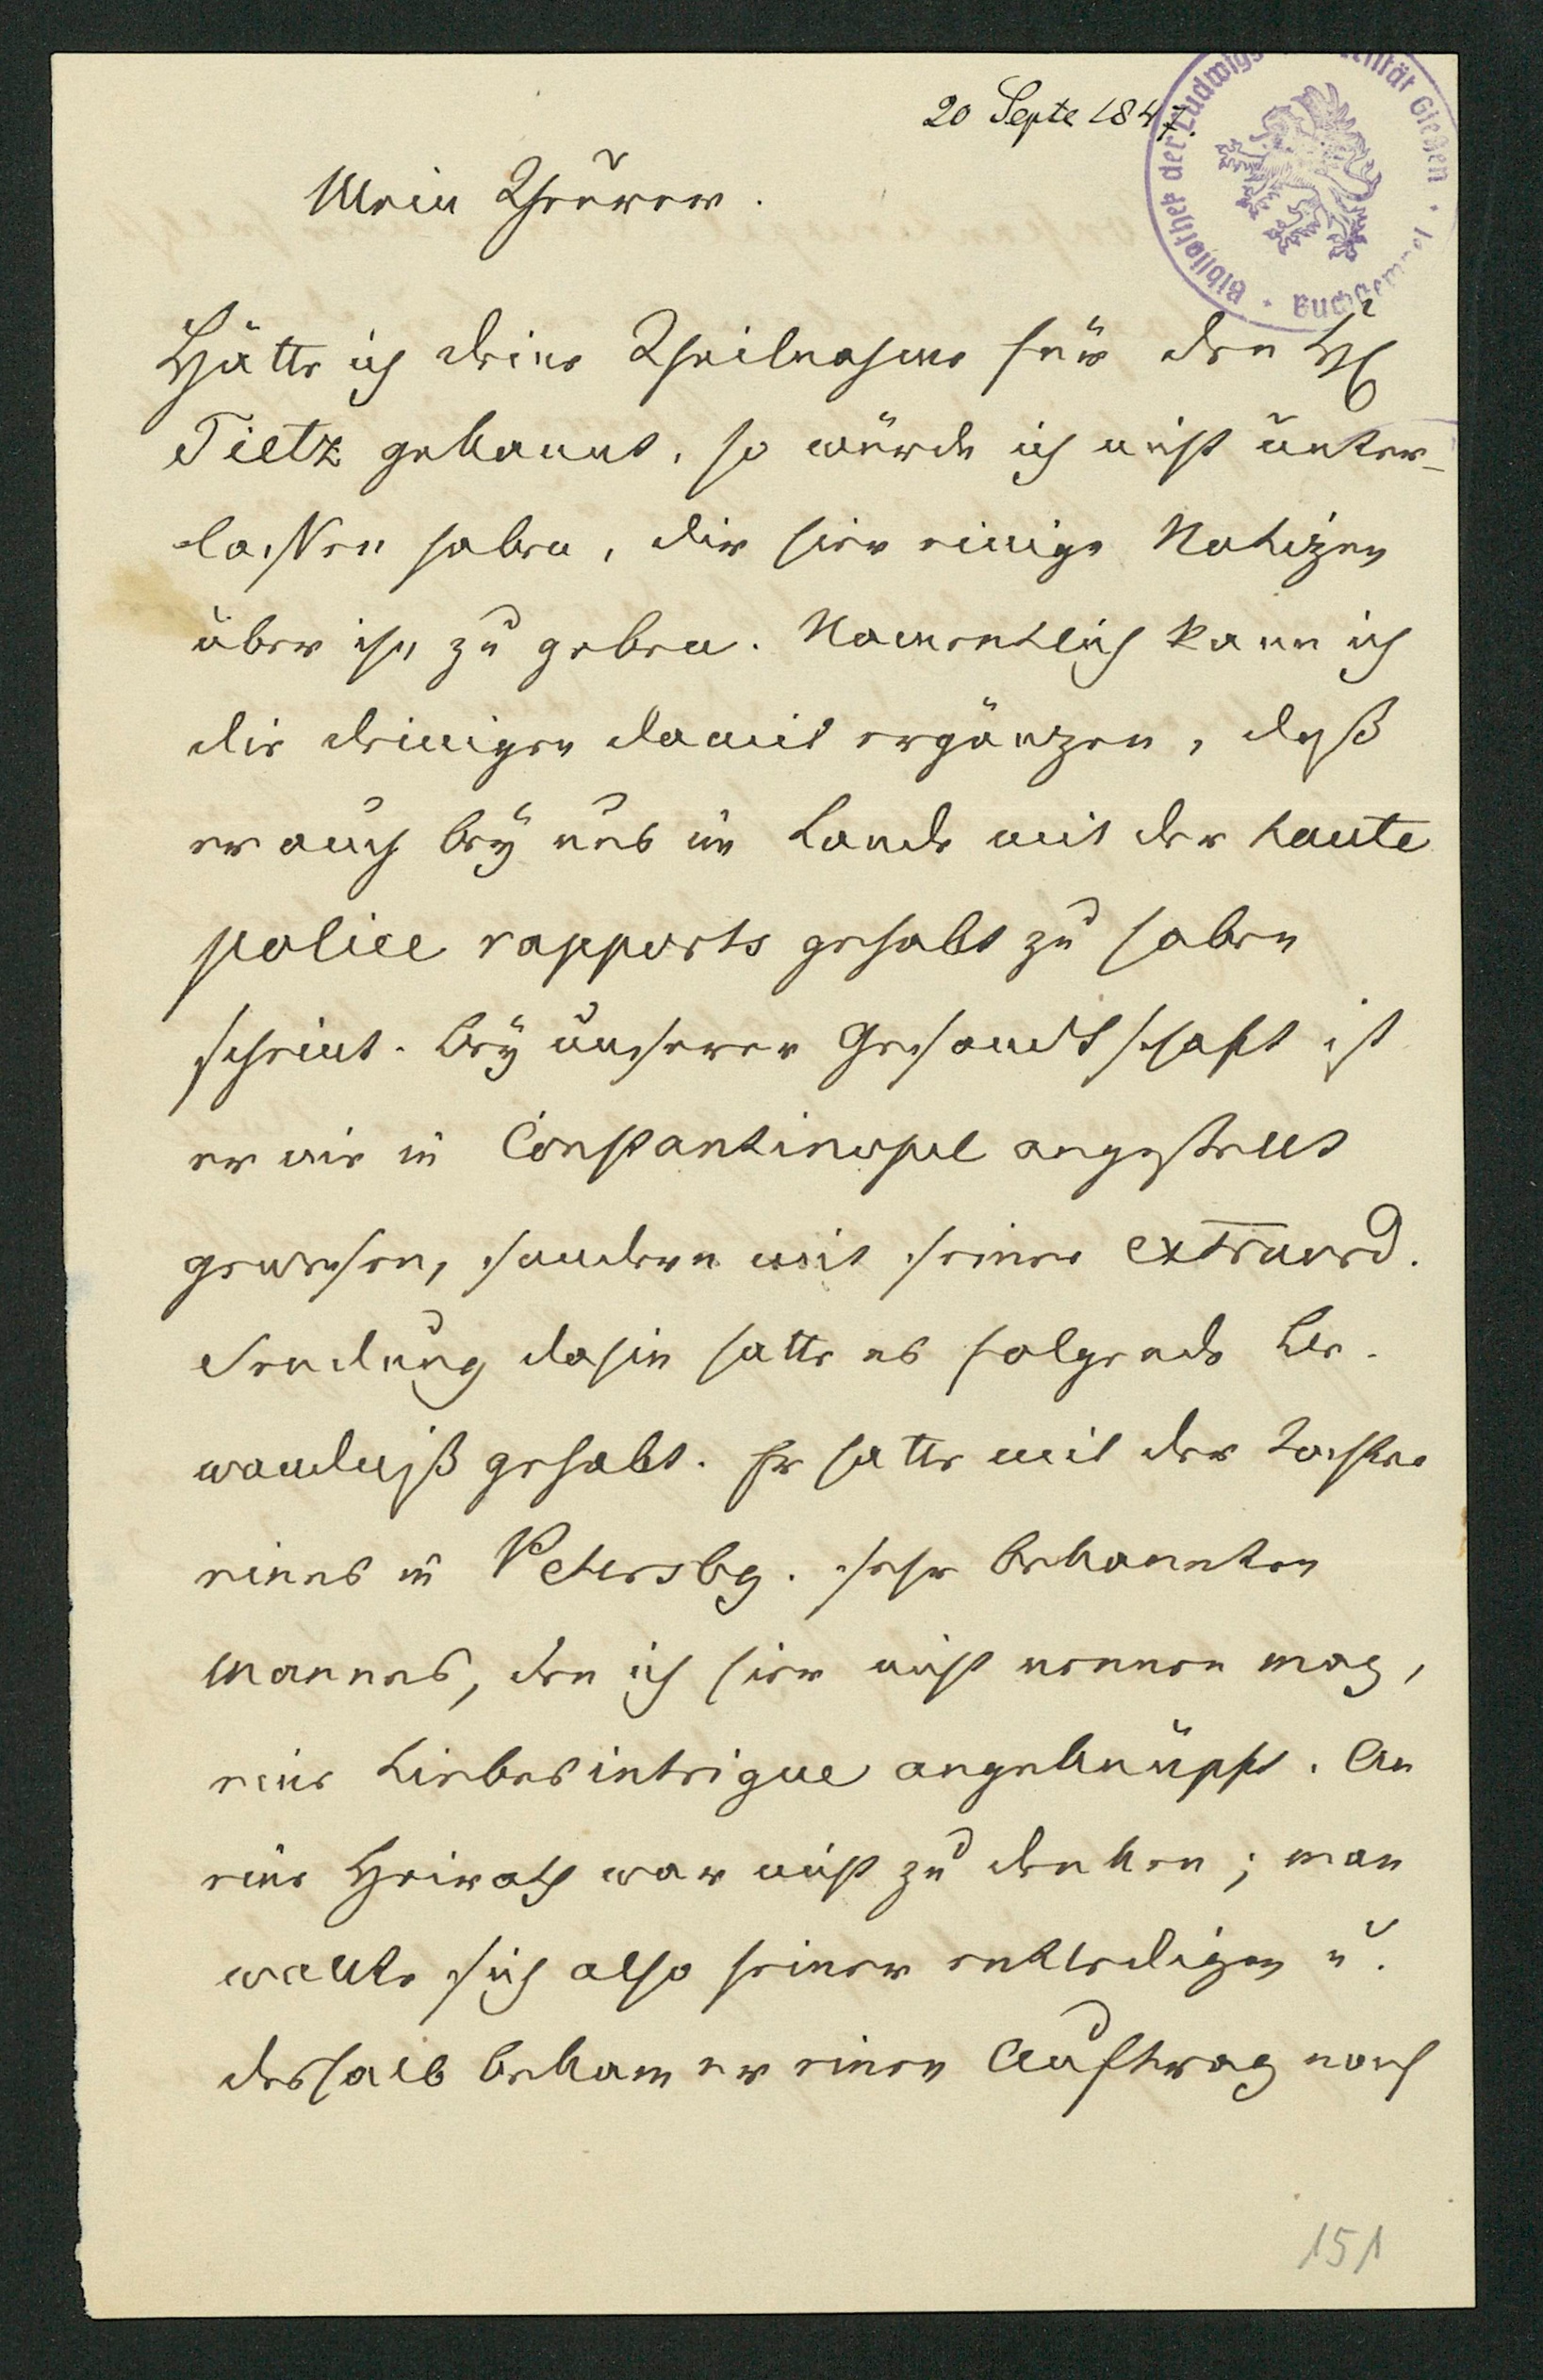 20 Septe 1847.
Bibliothek der Ludwigs Gießen
Mein Theurer.
Hätte ich deine Theilnahme für den H
Tietz gekannt, so würde ich nicht unter-
lassen haben, dir hier einige Notizen
über ihn zu geben. Namentlich kann ich
die deinigen damit ergänzen, daß
er auch bey uns im Lande mit der haute
police rapports gehabt zu haben
scheint. Bey unserer Gesandtschaft ist
er nie in Constantinopel angestellt
gewesen, sondern mit seiner extraord.
Sendung dahin hatte es folgende Be-
wandniß gehabt. Er hatte mit der Tochter
eines in Petersbg. sehr bekannten
Mannes, den ich hier nicht nennen mag,
eine Liebesintrigue angeknüpft. An
eine Heirath war nicht zu denken; man
wollte sich also seiner entledigen u.
deshalb bekam er einen Auftrag nach
151